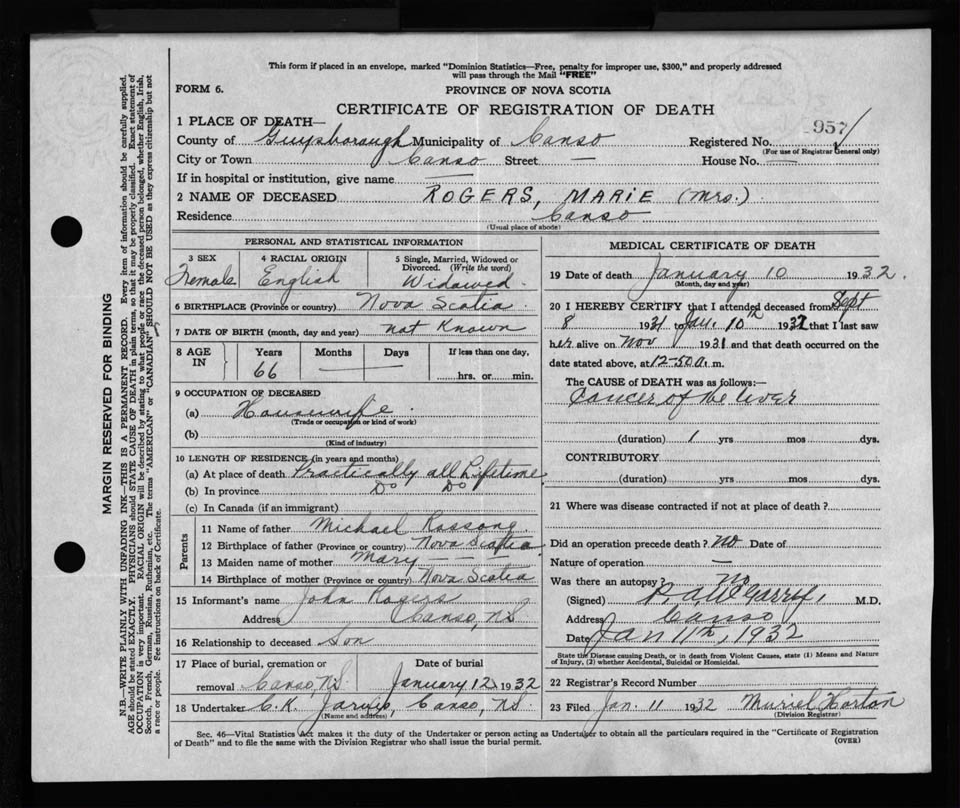 This form if placed in an envelope, marked "Dominion Statistics—Free, penalty for improper use, $300," and properly addressed
will pass through the Mail "FREE"
FORM 6.
PROVINCE OF NOVA SCOTIA
CERTIFICATE OF REGISTRATION OF DEATH
1 PLACE OF DEATH—
957
County of Guysborough Municipality of Canso Registered No.
(For use of Registrar General only)
City or Town Canso Street — House No. —
If in hospital or institution, give name —
2 NAME OF DECEASED ROGERS, MARIE (Mrs.)
Residence Canso
(Usual place of abode)
PERSONAL AND STATISTICAL INFORMATION
3 SEX 4 RACIAL ORIGIN 5 Single, Married, Widowed or Divorced. (Write the word)
Female English Widowed
6 BIRTHPLACE (Province or country) Nova Scotia
7 DATE OF BIRTH (month, day and year) not Known
8 AGE IN Years Months Days If less than one day,
66 — hrs. or min.
9 OCCUPATION OF DECEASED
(a) Housewife
(Trade or occupation or kind of work)
(b)
(Kind of industry)
10 LENGTH OF RESIDENCE (in years and months)
(a) At place of death Practically all Lifetime
(b) In province Do Do
(c) In Canada (if an immigrant)
Parents
11 Name of father Michael
12 Birthplace of father (Province or country) Nova Scotia
13 Maiden name of mother Mary —
14 Birthplace of mother (Province or country) Nova Scotia
15 Informant's name John Rogers
Address Canso, NS
16 Relationship to deceased Son
17 Place of burial, cremation or Date of burial
removal Canso, NS. January 12 1932
18 Undertaker C. K. Jarvis, Canso, NS.
(Name and address)
MEDICAL CERTIFICATE OF DEATH
19 Date of death January 10 1932.
(Month, day and year)
20 I HEREBY CERTIFY that I attended deceased from Sept
8 1931 to Jan. 10th 1932 that I last saw
her alive on Nov 1931 and that death occurred on the
date stated above, at 12-50 a. m.
The CAUSE of DEATH was as follows:—
Cancer of the liver
(duration) 1 yrs mos dys.
CONTRIBUTORY
(duration) yrs mos dys.
21 Where was disease contracted if not at place of death?
Did an operation precede death? no Date of
Nature of operation —
Was there an autopsy? No
(Signed) M.D.
Address Canso
Date Jan 11th, 1932
State the Disease causing Death, or in death from Violent Causes, state (1) Means and Nature
of Injury, (2) whether Accidental, Suicidal or Homicidal.
22 Registrar's Record Number
23 Filed Jan. 11 1932 Muriel Horton
(Division Registrar)
Sec. 46—Vital Statistics Act makes it the duty of the Undertaker or person acting as Undertaker to obtain all the particulars required in the "Certificate of Registration
of Death" and to file the same with the Division Registrar who shall issue the burial permit.
(OVER)
MARGIN RESERVED FOR BINDING
N.B.—WRITE PLAINLY WITH UNFADING INK—THIS IS A PERMANENT RECORD. Every item of information should be carefully supplied.
AGE should be stated EXACTLY. PHYSICIANS should STATE CAUSE OF DEATH in plain terms, so that it may be properly classified. Exact statement of
OCCUPATION is very important. RACIAL ORIGIN will be described by stating to what people or race the deceased person belonged, whether English, Irish,
Scotch, French, German, Russian, Ruthenian, etc. The terms "AMERICAN" or "CANADIAN" SHOULD NOT BE USED as they express citizenship but not
a race or people. Fee instructions on back of Certificate.